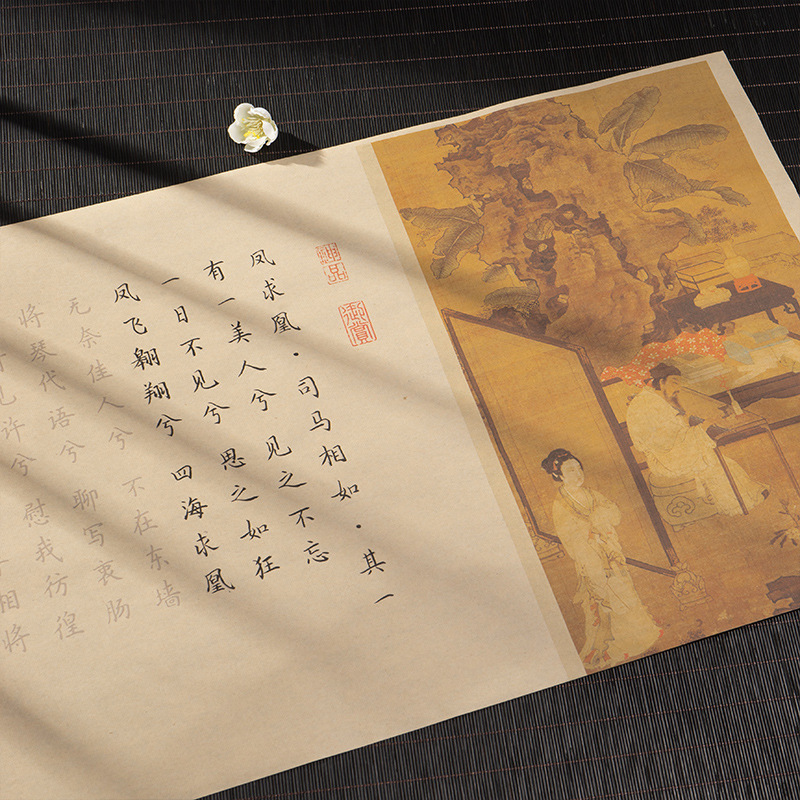 神品
御賞
凤求凰·司马相如·其一
有一美人兮 见之不忘
一日不见兮 思之如狂
凤飞翱翔兮 四海求凰
无奈佳人兮 不在东墙
将琴代语兮 聊写衷肠
见许兮 慰我彷徨
相将